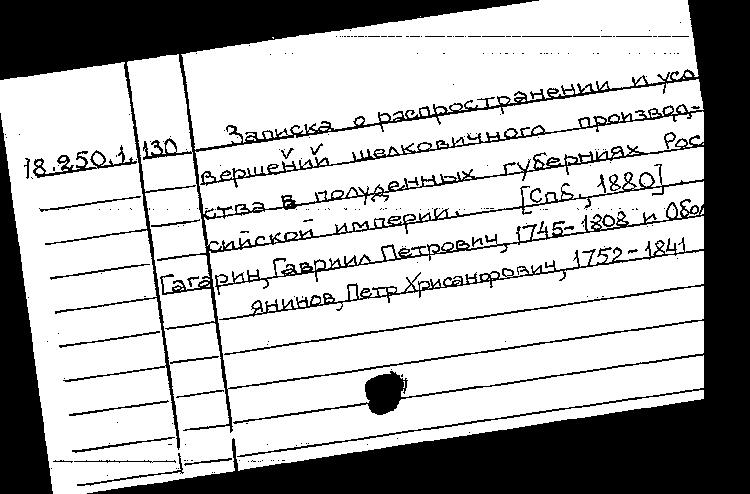 Записка о распространении и усо
18.250.1.130 вершений шелковичного производ-
ства в полуденных губерниях Рос
сийской империи. [Спб., 1880].
Гагарин, Гавриил Петрович, 1745-1808 и Обол
янинов, Петр Хрисанфович, 1752-1841